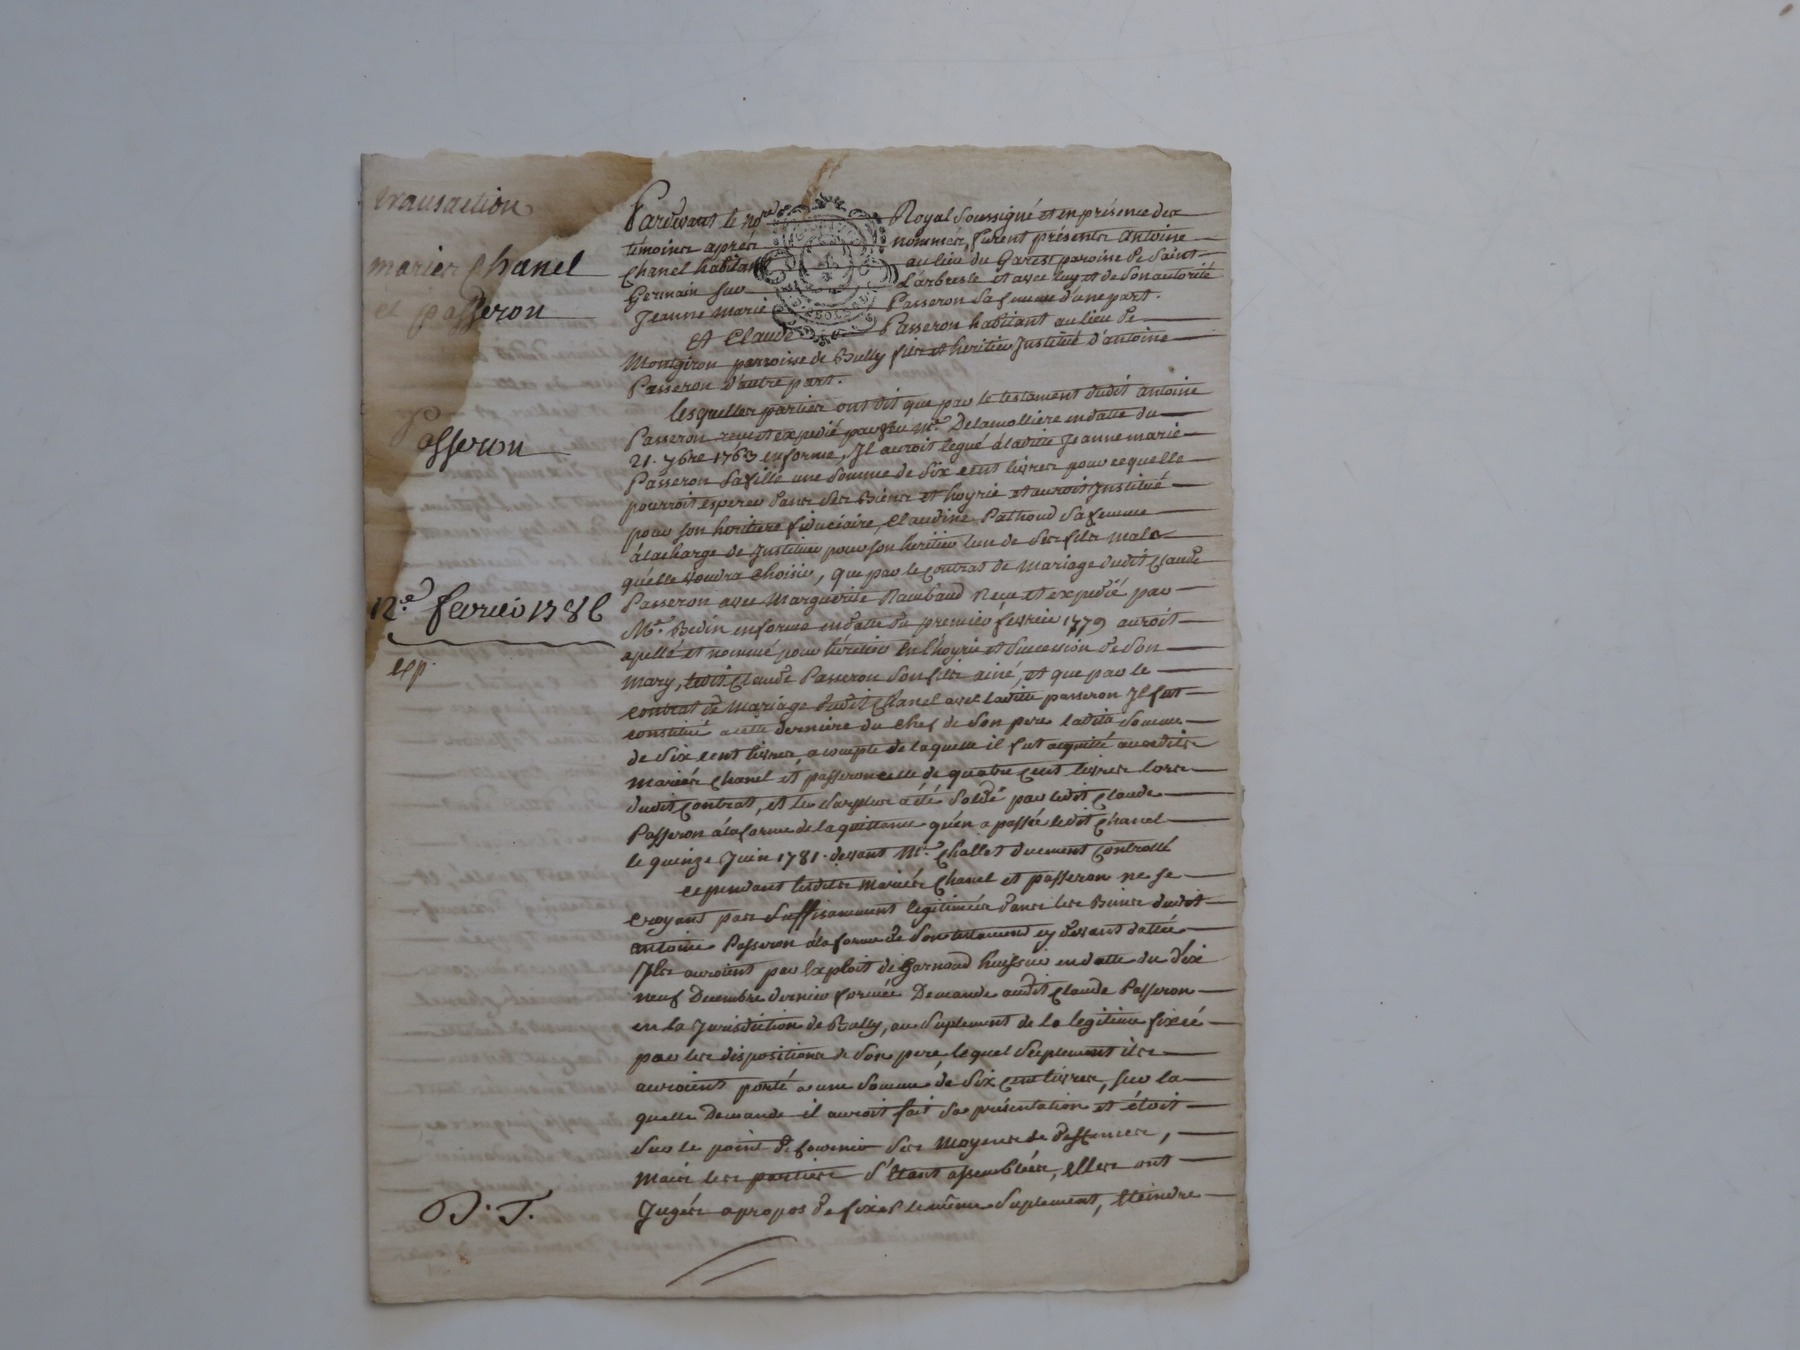 transaction
mariés Chanel
et passeron
Passeron
12e. fevrier 1786
exp.
Pardevant le nore Royal soussigné et en présence des
témoins aprés nommés, furent présents antoine
Chanel habitant au lieu du Garest paroisse de Saint
Germain sur L'arbresle et avec luy et de son autorité
Jeanne Marie Passeron sa femme d'une part.
Et Claude Passeron habitant au lieu de
Montgiron parroisse de Bully fils et heritier Institué d'antoine
Passeron d'autre part.
Lesquelles parties ont dit que par le testament dudit antoine
Passeron recu et expedié par feu Me. Delamolliere en datte du
21. 7bre 1763 en forme, Il auroit legué à laditte Jeanne marie
Passeron sa fille une somme de six cent livres pour ce quelle
pourroit esperer dans ses Biens et hoyrie et auroit Institué
pour son heritiere fiduciaire, Claudine Pathoud sa femme
à la charge de Instituer pour son heritier lun de ses fils male
qu'elle voudra choisir, que par le contrat de Mariage dudit Claude
Passeron avec Marguerite Raimbaud Recu et expedié par
Me. Bedin en forme en datte du premier fevrier 1779 auroit
apellé et nommé pour héritier en l'hoyrie et succession de son
Mary, ledit Claude Passeron son fils ainé, et que par le
contrat de Mariage dudit Chanel avec laditte passeron Il fut
constitué a cette derniere du chef de son pere ladite somme
de six cent livres, a compte de laquelle il fut acquitté auxdits
Mariés Chanel et passeron celle de quatre cent livres lors
dudit contrat, et le surplus a été soldé par ledit Claude
Passeron à la forme de la quittance qu'en a passée ledit Chanel
le quinze Juin 1781. devant Me. Challet duement controllé
cependant lesdits mariés Chanel et passeron ne se
croyant pas suffisamment legitimés dans les Biens dudit
antoine Passeron à la forme de son testament cy devant datté
Ils auroient par exploit de Garnoud huissier en datte du dix
neuf Decembre dernier formée Demande audit Claude Passeron
en la Jurisdiction de Bully, au suplement de la legitime fixée
par les dispositions de son pere, lequel supplement ils
auroient porté a une somme de six cent livres, sur la
quelle Demande il auroit fait sa présentation et étoit
sur le point de fournir ses Moyens de deffences,
Mais les parties s'étant assemblées, elles ont
Jugés apropos de fixer le même suplement, eteindre